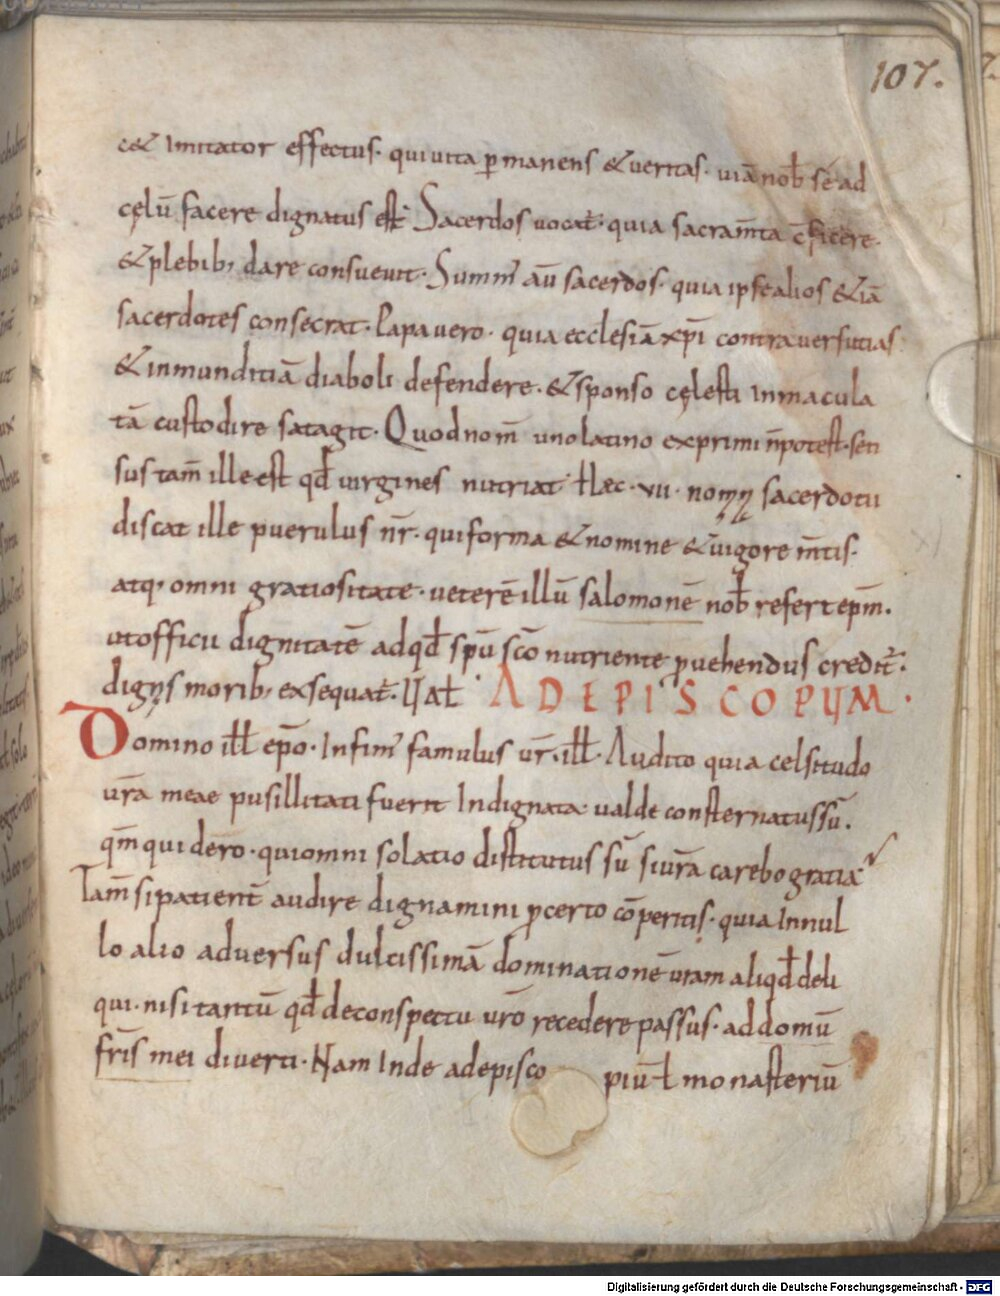 107.
c& Imitator effectus· qui uita ꝑmanens &ueritas· uiā nob̄ se ad
cęlū facere dignatus est· Sacerdos uocat̄· quia sacram̄ta c̄ficere·
&plebib; dare consueuit· Summ' aū sacerdos· quia ipse alios &iā
sacerdotes consecrat· Papa uero· quia ecclesiā xp̄i contra uersutias
&inmunditiā diaboli defendere· &sponso cęlesti Inmacula
tā custodire satagit· Quod nom̄ uno latino exprimi n̄ potest· sen
sus tam̄ ille est qd̄ uirgines nutriat· Haec· xii· nomīn sacerdotū
discat ille puerulus nr̄· qui forma &nomine &uigore m̄tis·
atq; omni gratiositate· ueterē illū salomonē nob̄ refert ep̄m.
ut officii dignitatē ad qd̄ sp̄u sc̄o nutriente ꝓuehendus credit̄·
dignis morib; exsequat̄· Ual̄· AD EPISCOPUM·
Domino ill̄ ep̄o· Infim' famulus ur̄· ill̄· Audito quia celsitudo
ur̄a meae pusillitati fuerit Indignata· ualde consternatus sū·
qm̄ qui dēro· qui omni solatio distitutus sū si ur̄a carebo gratia
Tam̄ si patient̄ audire dignamini ꝓcerto cōperitis· quia In nul
lo alio aduersus dulcissimā dominationē ur̄am aliqd̄ deli
qui· nisi tantū qd̄ de conspectu ur̄o recedere passus· ad domū
fr̄is mei diuerti· Nam Inde ad episco piū ł monasteriū
Digitalisierung gefördert durch die Deutsche Forschungsgemeinschaft - DFG